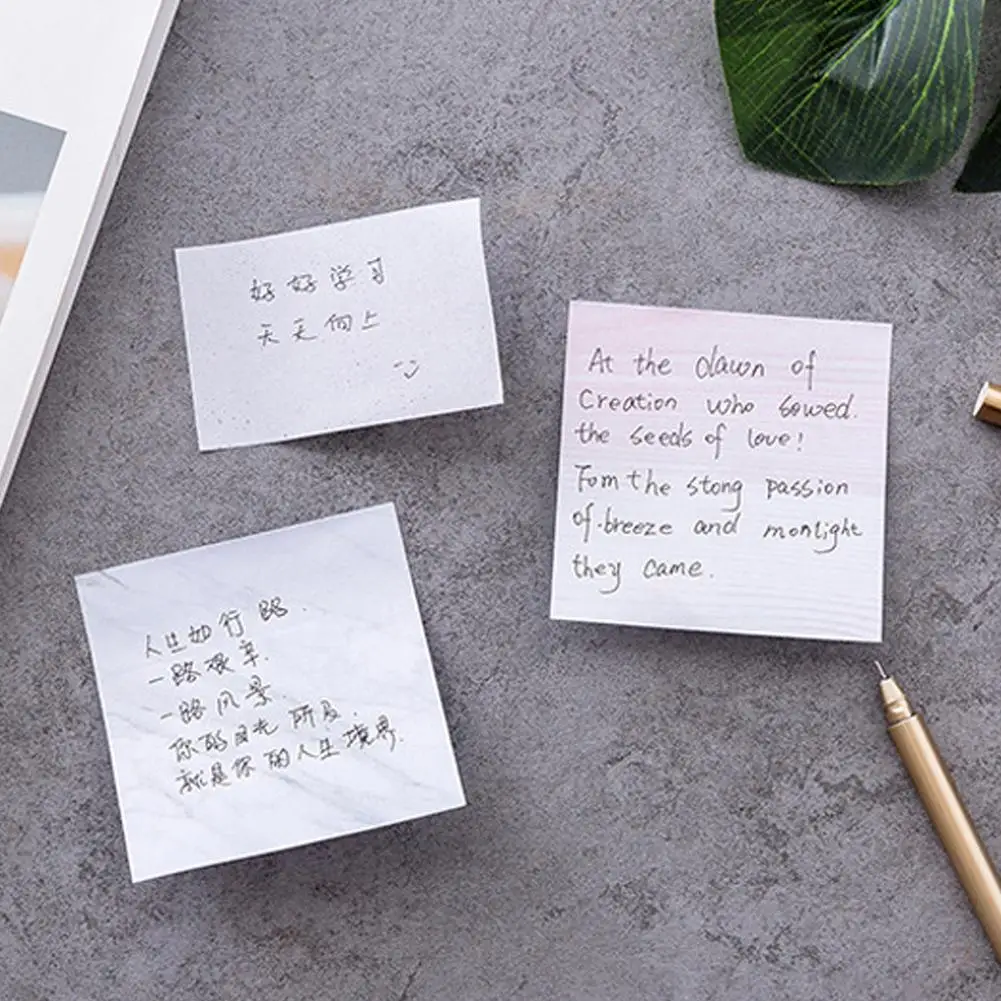 好好学习
天天向上
At the dawn of
Creation who sowed.
the seeds of love!
Fom the stong passion
of breeze and monlight
they came.
人生如行路.
一路艰辛.
一路风景
你的目光所及.
就是你的人生境界.